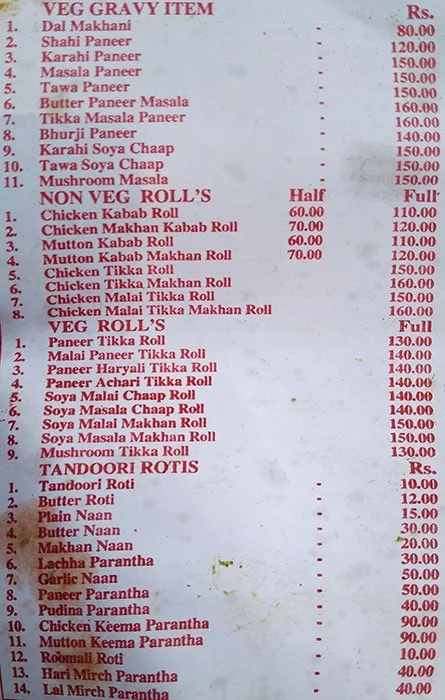 VEG GRAVY ITEM Rs.
1. Dal Makhani - 80.00
2. Shahi Paneer - 120.00
3. Karahi Paneer - 150.00
4. Masala Paneer - 150.00
5. Tawa Paneer - 150.00
6. Butter Paneer Masala - 160.00
7. Tikka Masala Paneer - 160.00
8. Bhurji Paneer - 140.00
9. Karahi Soya Chaap - 150.00
10. Tawa Soya Chaap - 150.00
11. Mushroom Masala - 150.00
NON VEG ROLL'S Half Full
1. Chicken Kabab Roll 60.00 110.00
2. Chicken Makhan Kabab Roll 70.00 120.00
3. Mutton Kabab Roll 60.00 110.00
4. Mutton Kabab Makhan Roll 70.00 120.00
5. Chicken Tikka Roll 150.00
6. Chicken Tikka Makhan Roll 160.00
7. Chicken Malai Tikka Roll 150.00
8. Chicken Malai Tikka Makhan Roll 160.00
VEG ROLL'S Full
1. Paneer Tikka Roll 130.00
2. Malai Paneer Tikka Roll 140.00
3. Paneer Haryali Tikka Roll 140.00
4. Paneer Achari Tikka Roll 140.00
5. Soya Malai Chaap Roll 140.00
6. Soya Masala Chaap Roll 140.00
7. Soya Malai Makhan Roll 150.00
8. Soya Masala Makhan Roll 150.00
9. Mushroom Tikka Roll 130.00
TANDOORI ROTIS Rs.
1. Tandoori Roti - 10.00
2. Butter Roti - 12.00
3. Plain Naan - 15.00
4. Butter Naan - 30.00
5. Makhan Naan - 20.00
6. Lachha Parantha - 30.00
7. Garlic Naan - 50.00
8. Paneer Parantha - 50.00
9. Pudina Parantha - 40.00
10. Chicken Keema Parantha - 90.00
11. Mutton Keema Parantha - 90.00
12. Roomali Roti - 10.00
13. Hari Mirch Parantha - 40.00
14. Lal Mirch Parantha - 40.00